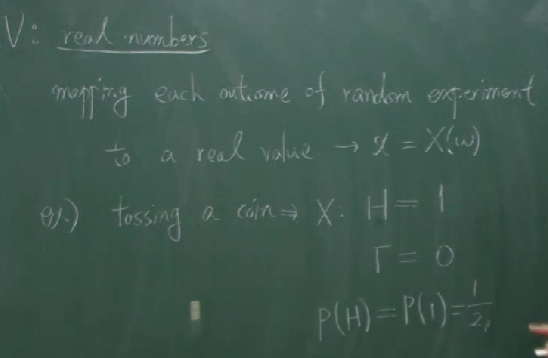 V: real numbers
mapping each outcome of random experiment
to a real value → x = X(ω)
ex.) tossing a coin ⇒ X. H = 1
T = 0
P(H) = P(1) = 1/2,